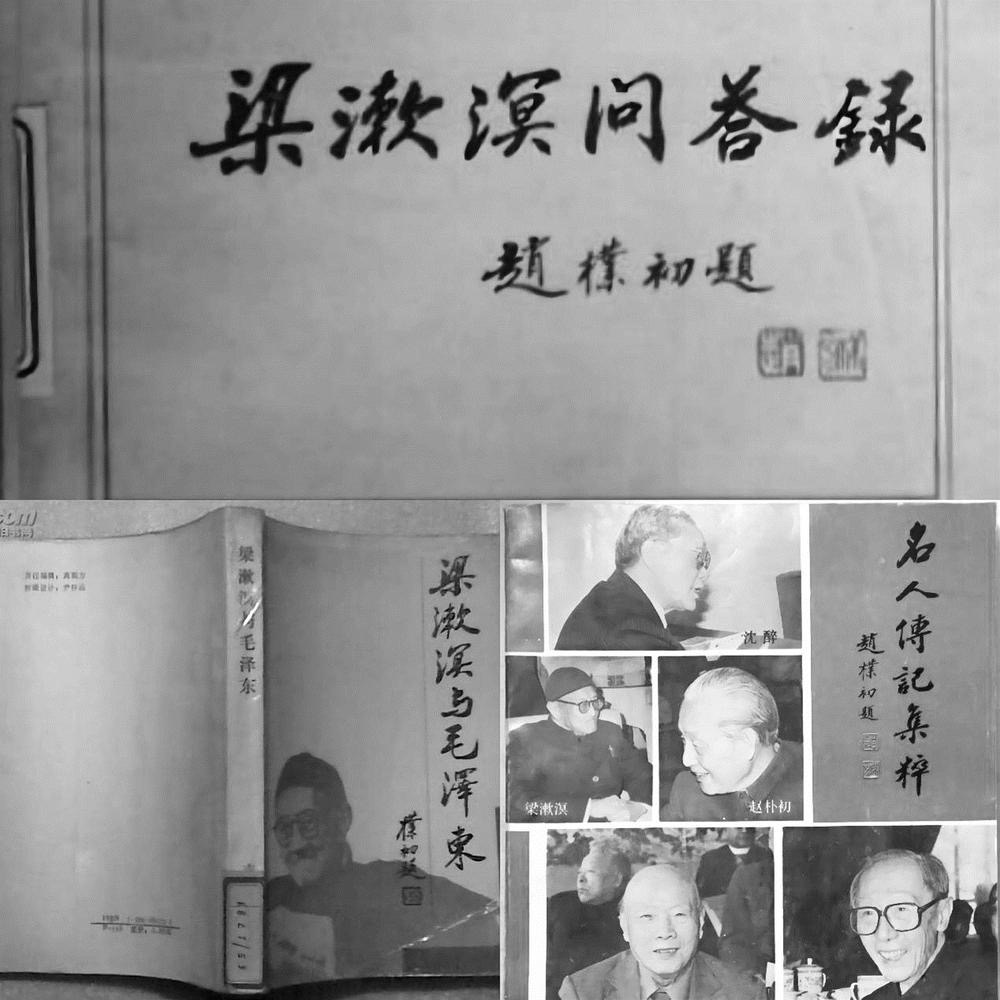 梁漱溟问荅録
趙樸初題
梁漱溟与毛泽东
梁漱溟与毛澤東
樸初題
沈醉
梁漱溟
赵朴初
名人傳記集粹
趙樸初題